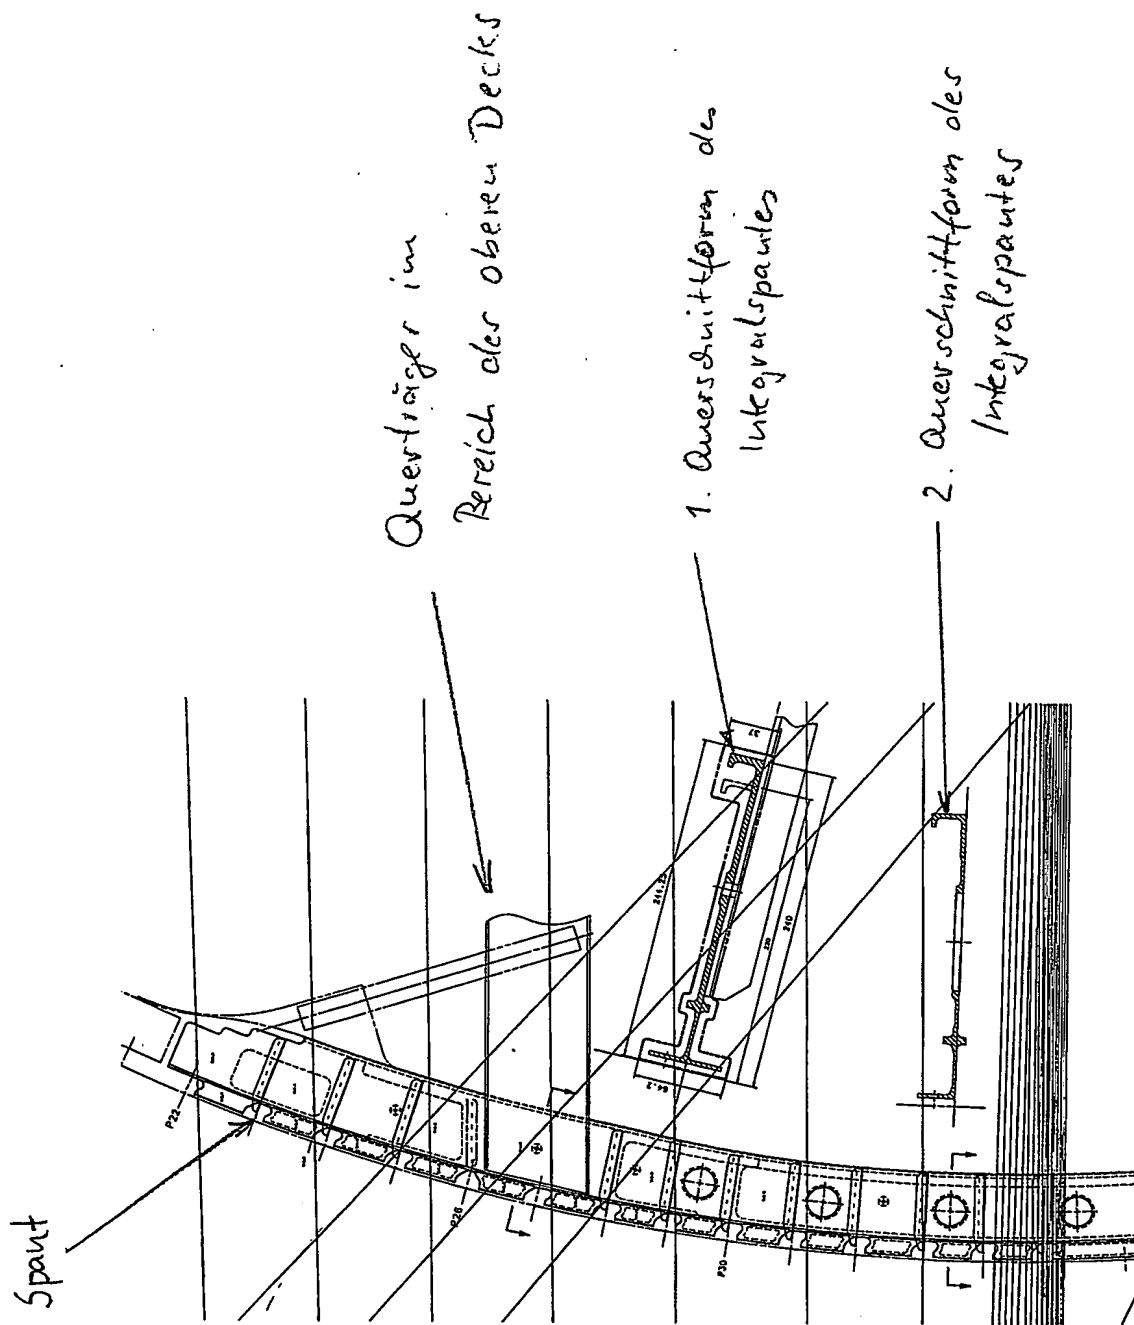 Spant
Querträger im
Bereich des oberen Decks
1. Querschnittform des
Integralspantes
2. Querschnittform des
Integralspantes
P22
P26
P30
244.25
37
220
240